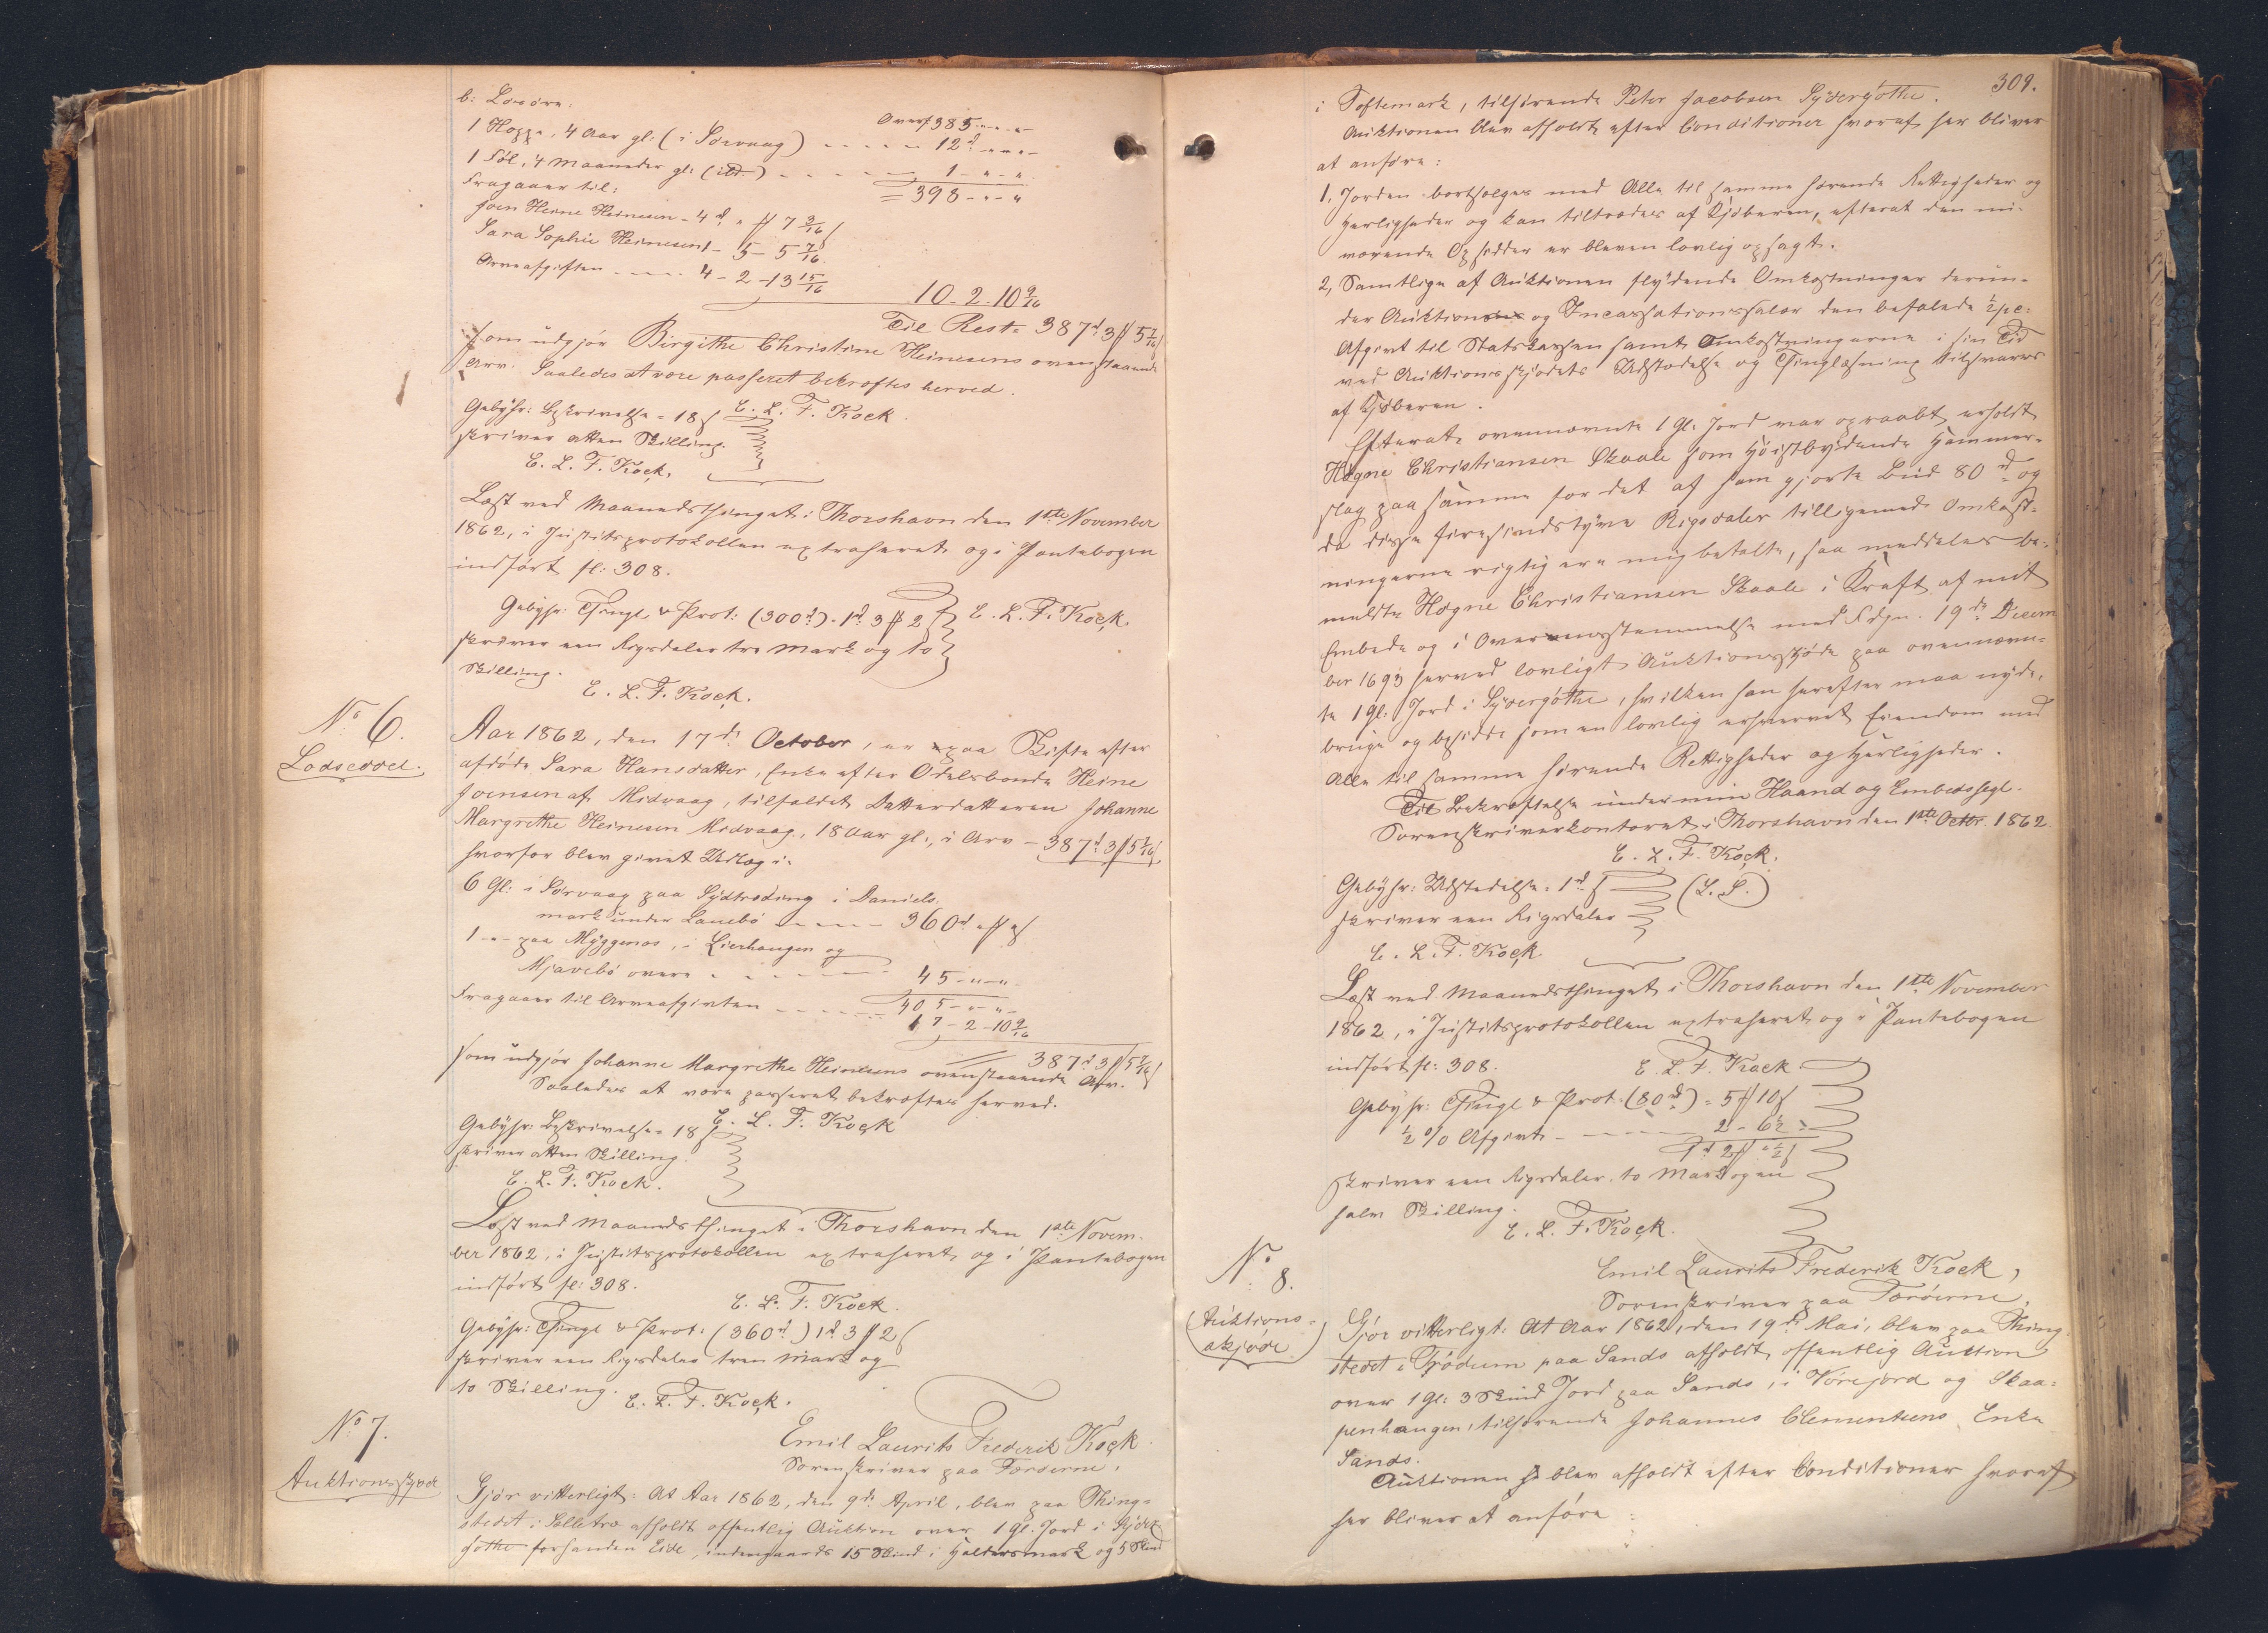 b: Løsøre:
Overf 385 - " - "
1 Hoppe, 4 Aar gl. (i Sørvaag) - - - - - 12 d - " - "
1 Føl, 4 Maaneder gl: (ibd.) - - - - - 1 - " - "
= 398 - " - "
Fragaaer til:
Joen Heine Heinesen - 4 d " # 7 3/16 ſ
Sara Sophie Heinesen 1 - 5 - 5 7/16
Arveafgiften - - - - 4 - 2 - 13 15/16
10 - 2 - 10 9/16
Til Rest = 387 d 3 # 5 7/16 ſ
som udgjør Birgithe Christine Heinesens ovenstaaende
Arv. Saaledes at være passeret bekræftes herved.
E. L. F. Kock.
Gebyhr: Beskrivelse = 18 ſ
skriver atten Skilling.
E. L. F. Kock.
Læst ved Maanedsthinget i Thorshavn den 1ste November
1862, i Justitsprotokollen extraheret og i Pantebogen
indført fl: 308.
Gebyhr: Thingl. & Prot: (300 d) = 1 d 3 # 2 ſ E. L. F. Kock.
skriver een Rigsdaler tre Mark og to
Skilling.
E. L. F. Kock.
No 6.
Lodseddel.
Aar 1862, den 17de October, er paa Skifte efter
afdøde Sara Hansdatter, Enke efter Odelsbonde Heine
Joensen af Midvaag, tilfaldet Datterdatteren Johanne
Margrethe Heinesen Midvaag, 18 Aar gl:, i Arv - 387 d 3 # 5 7/16 ſ
hvorfor blev givet Udlæg i:
6 Gl: i Sørvaag paa Sydtræding i Daniels
mark under Lauebø - - - - 360 d " # " ſ
1 - " - paa Myggenæs, i Lierhaugen og
Mjavebø øvere - - - - - 45 - " - "
405 - " - "
Fragaaer til Arveafgivten - - - - - 17 - 2 - 10 9/16
387 d 3 # 5 7/16 ſ
som udgjør Johanne Margrethe Heinesens ovenstaaende Arv.
Saaledes at være passeret bekræftes herved.
E. L. F. Kock
Gebyhr: Beskrivelse = 18 ſ
skriver atten Skilling.
E. L. F. Kock.
Læst ved Maanedsthinget i Thorshavn den 1ste Novem-
ber 1862, i Justitsprotokollen extraheret og i Pantebogen
indført fl: 308.
E. L. F. Kock.
Gebyhr: Thingl & Prot: (360 d) 1 d 3 # 2 ſ
skriver een Rigsdaler tree Mark og
to Skilling.
E. L. F. Kock.
No 7.
Auktionsskjøde
Emil Laurits Frederik Kock
Sorenskriver paa Færøerne,
Gjør vitterligt: At Aar 1862, den 9de April, blev paa Thing-
stedet i Selletræ afholdt offentlig Auktion over 1 gl. Jord i Syder
gøthe forhanden Eide, indengaards 15 Skind i Haldersmark og 5 Skind
309.
i Toftemark, tilhørende Peter Jacobsen Sydergøthe.
Auktionen blev afholdt efter Conditioner hvoraf her bliver
at anføre:
1, Jorden bortsælges med Alle til samme hørende Rettigheder og
Herligheder og kan tiltrædes af Kjøberen, efterat den nu-
værende Opsidder er bleven lovlig opsagt.
2, Samtlige af Auktionen flydende Omkostninger derun-
der Auktions og Incassationssalær den befalede ½ pc:
Afgivt til Statskassen samt Omkostningerne i sin Tid
ved Auktionsskjødets Udstædelse og Thinglæsning tilsvares
af Kjøberen.
Efterat ovennævnte 1 Gl. Jord var opraabt erholdt
Høgne Christiansen Skaale som Høistbydende Hammer-
slag paa samme for det af ham gjorte Bud 80 d og
da disse firesindstyve Rigsdaler tilligemed Omkost-
ningerne rigtig ere mig betalte, saa meddeles be-
meldte Høgne Christiansen Skaale i Kraft af mit
Embede og i Overeensstemmelse med Fdgn. 19de Decem
ber 1693 herved lovligt Auktionsskjøde paa ovennævn-
te 1 gl. Jord i Sydergøthe, hvilken han herefter maa nyde,
bruge og besidde som en lovlig erhvervet Eiendom med
Alle til samme hørende Rettigheder og Herligheder.
Til Bekræftelse under min Haand og Embedssegl.
Sorenskriverkontoret i Thorshavn den 1ste Octbr. 1862.
E. L. F. Kock.
(L. S.)
Gebyhr: Udstedelse = 1 d
skriver een Rigsdaler
E. L. F. Kock
Læst ved Maanedsthinget i Thorshavn den 1ste November
1862, i Justitsprotokollen extraheret og i Pantebogen
indført fl: 308.
E. L. F. Kock.
Gebyhr: Thingl & Prot. (80 d) = 5 # 10 ſ
½ % Afgivt - - - - - 2 - 6 ½ -
1 d 2 # " ½ ſ
skriver een Rigsdaler to Mark og en
halv Skilling.
E. L. F. Kock.
No 8.
Auktions-
skjøde
Emil Laurits Frederik Kock,
Sorenskriver paa Færøerne,
Gjør vitterligt: At Aar 1862, den 19de Mai, blev paa Thing
stedet i Trødum paa Sands afholdt offentlig Auktion
over 1 gl: 3 Skind Jord paa Sands, i Vørejord og Skaa-
penhaugen, tilhørende Johannes Clementsens Enke
Sands.
Auktionen blev afholdt efter Conditioner hvoraf
her bliver at anføre: